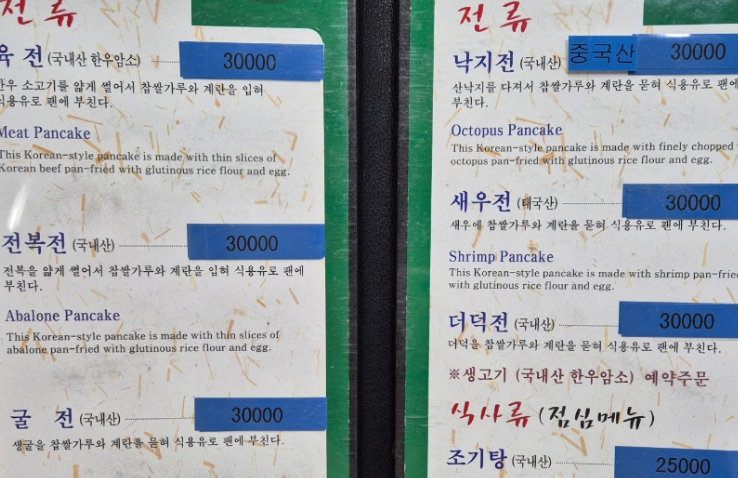 전 류
육 전 (국내산 한우암소) 30000
한우 소고기를 얇게 썰어서 찹쌀가루와 계란을 입혀
식용유로 팬에 부친다.
Meat Pancake
This Korean-style pancake is made with thin slices of
Korean beef pan-fried with glutinous rice flour and egg.
전복전 (국내산) 30000
전복을 얇게 썰어서 찹쌀가루와 계란을 입혀 식용유로 팬에
부친다.
Abalone Pancake
This Korean-style pancake is made with thin slices of
abalone pan-fried with glutinous rice flour and egg.
굴 전 (국내산) 30000
생굴을 찹쌀가루와 계란을 묻혀 식용유로 팬에 부친다.
전 류
낙지전 (국내산) 중국산 30000
산낙지를 다져서 찹쌀가루와 계란을 묻혀 식용유로 팬에
부친다.
Octopus Pancake
This Korean-style pancake is made with finely chopped
octopus pan-fried with glutinous rice flour and egg.
새우전 (태국산) 30000
새우에 찹쌀가루와 계란을 묻혀 식용유로 팬에 부친다.
Shrimp Pancake
This Korean-style pancake is made with shrimp pan-fried
with glutinous rice flour and egg.
더덕전 (국내산) 30000
더덕을 찹쌀가루와 계란을 묻혀 식용유로 팬에 부친다.
※생고기 (국내산 한우암소) 예약주문
식사류 (점심메뉴)
조기탕 (국내산) 25000